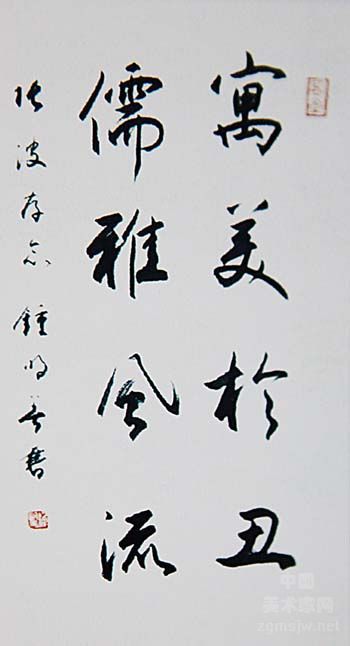 寓美於丑
儒雅风流
张波存念 鍾明善書
中国
美术家网
zgmsjw.net